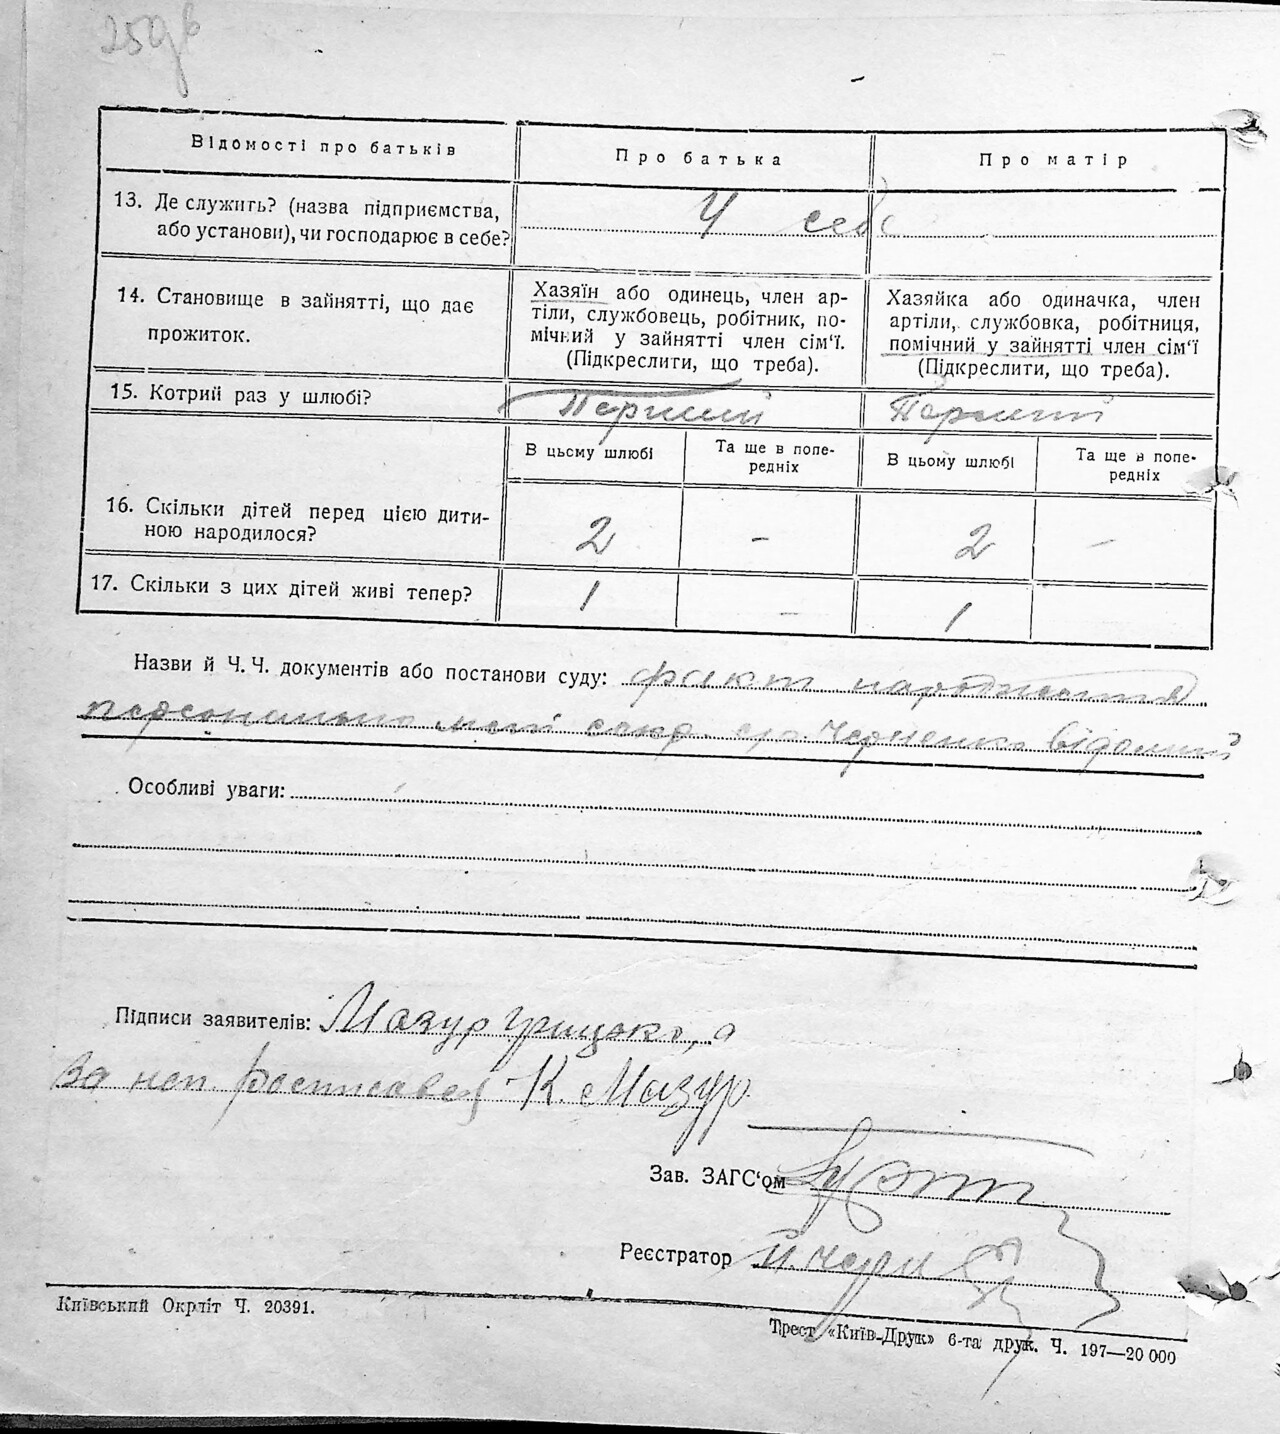 Відомості про батьків
Про батька
Про матір
13. Де служить? (назва підприємства,
або установи), чи господарює в себе?
У себе
14. Становище в зайнятті, що дає
прожиток.
Хазяїн або одинець, член ар-
тіли, службовець, робітник, по-
мічний у зайнятті член сім'ї.
(Підкреслити, що треба).
Хазяйка або одиначка, член
артіли, службовка, робітниця,
помічний у зайнятті член сім'ї
(Підкреслити, що треба).
15. Котрий раз у шлюбі?
Перший
Перший
В цьому шлюбі
Та ще в попе-
редніх
В цьому шлюбі
Та ще в попе-
редніх
16. Скільки дітей перед цією дити-
ною народилося?
2
-
2
-
17. Скільки з цих дітей живі тепер?
1
-
1
Назви й Ч. Ч. документів або постанови суду: факт народження
персонально мені секр. Черненко відомий
Особливі уваги:
Підписи заявителів: Мазур Грицько, а
за неп. росписався К. Мазур
Зав. ЗАГС'ом
Реєстратор
Київський Окрліт Ч. 20391.
Трест «Київ-Друк» 6-та друк. Ч. 197—20 000